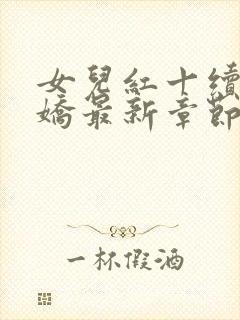 女兒紅十續
嬌最新章節
一杯假酒